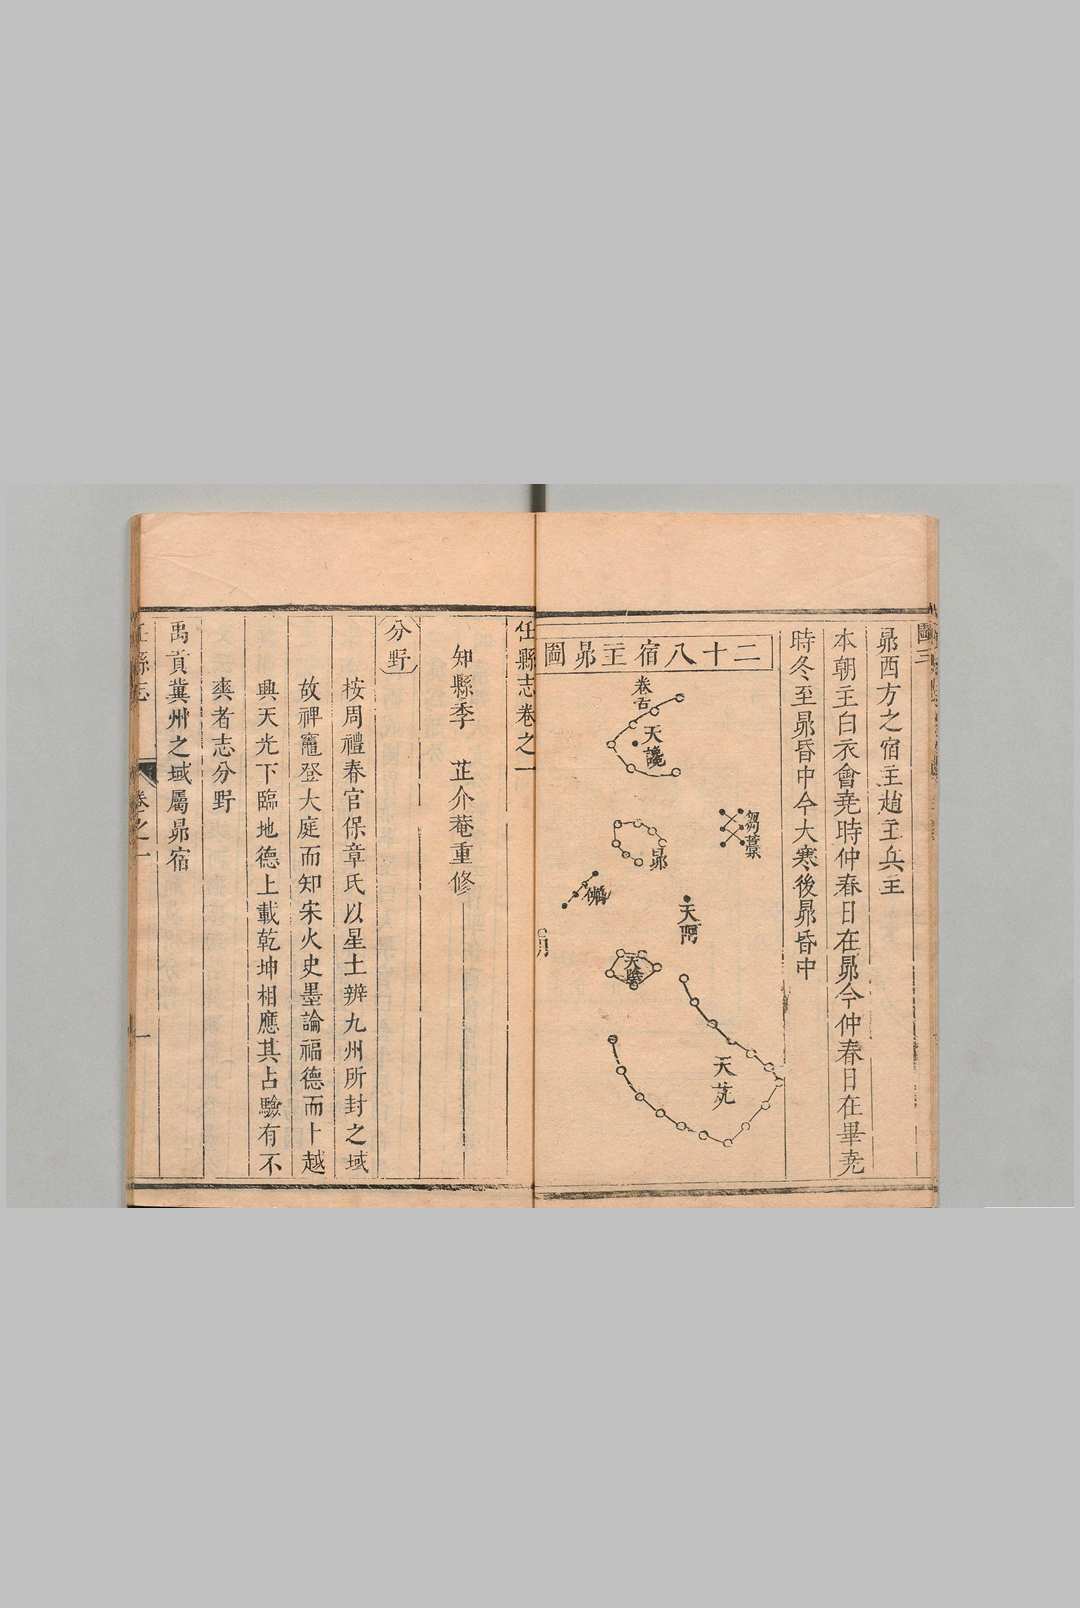 圖三
昴西方之宿主趙主兵主
本朝主白衣會堯時仲春日在昴今仲春日在畢堯
時冬至昴昏中今大寒後昴昏中
二十八宿主昴圖
卷舌
天讒
芻藁
昴
天阿
天陰
天苑
任縣志卷之一
知縣季 芷介菴重修
分野
按周禮春官保章氏以星土辨九州所封之域
故裨竈登大庭而知宋火史墨論福德而卜越
興天光下臨地德上載乾坤相應其占驗有不
爽者志分野
禹貢冀州之域屬昴宿
任縣志
卷之一
一